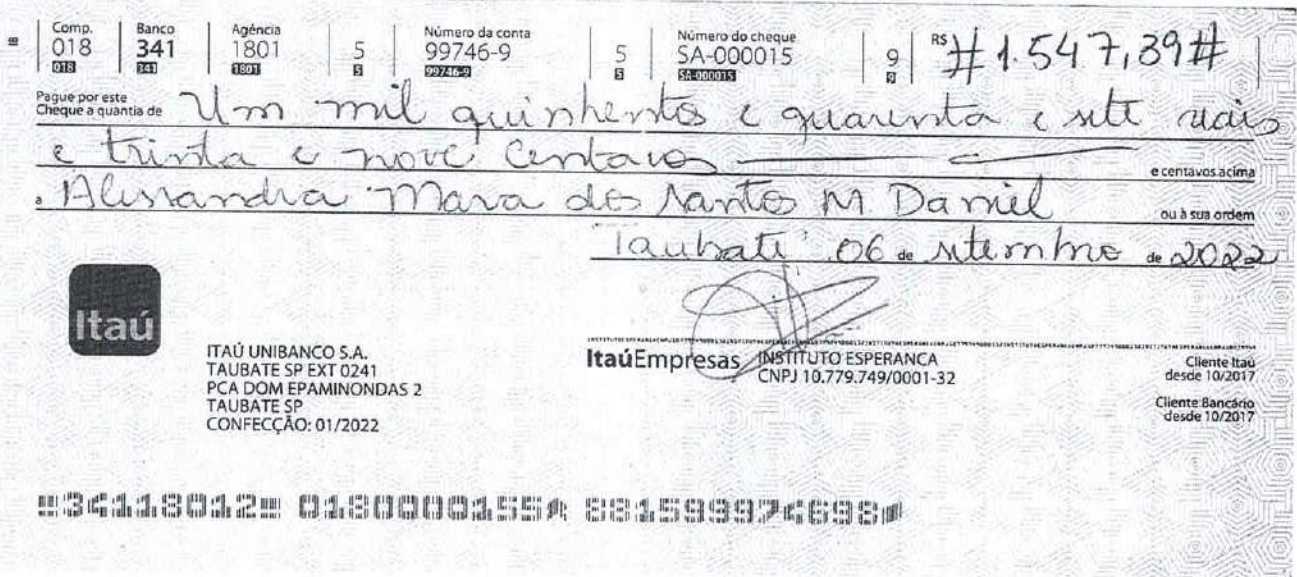 Comp. Banco Agência Número da conta Número do cheque
018 341 1801 5 99746-9 5 SA-000015 9 R$ #1.547,39#
018 341 1801 5 99746-9 5 SA-000015 9
Pague por este
Cheque a quantia de Um mil quinhentos e quarenta e sete reais
e trinta e nove centavos e centavos acima
a Alessandra Mara dos Santos M. Daniel ou à sua ordem
Taubaté 06 de setembro de 2022
Itaú
ITAÚ UNIBANCO S.A.
TAUBATE SP EXT 0241
PCA DOM EPAMINONDAS 2
TAUBATE SP
CONFECÇÃO: 01/2022
ItaúEmpresas INSTITUTO ESPERANCA
CNPJ 10.779.749/0001-32
Cliente Itaú
desde 10/2017
Cliente Bancário
desde 10/2017
34118012 0180000155 881599974698